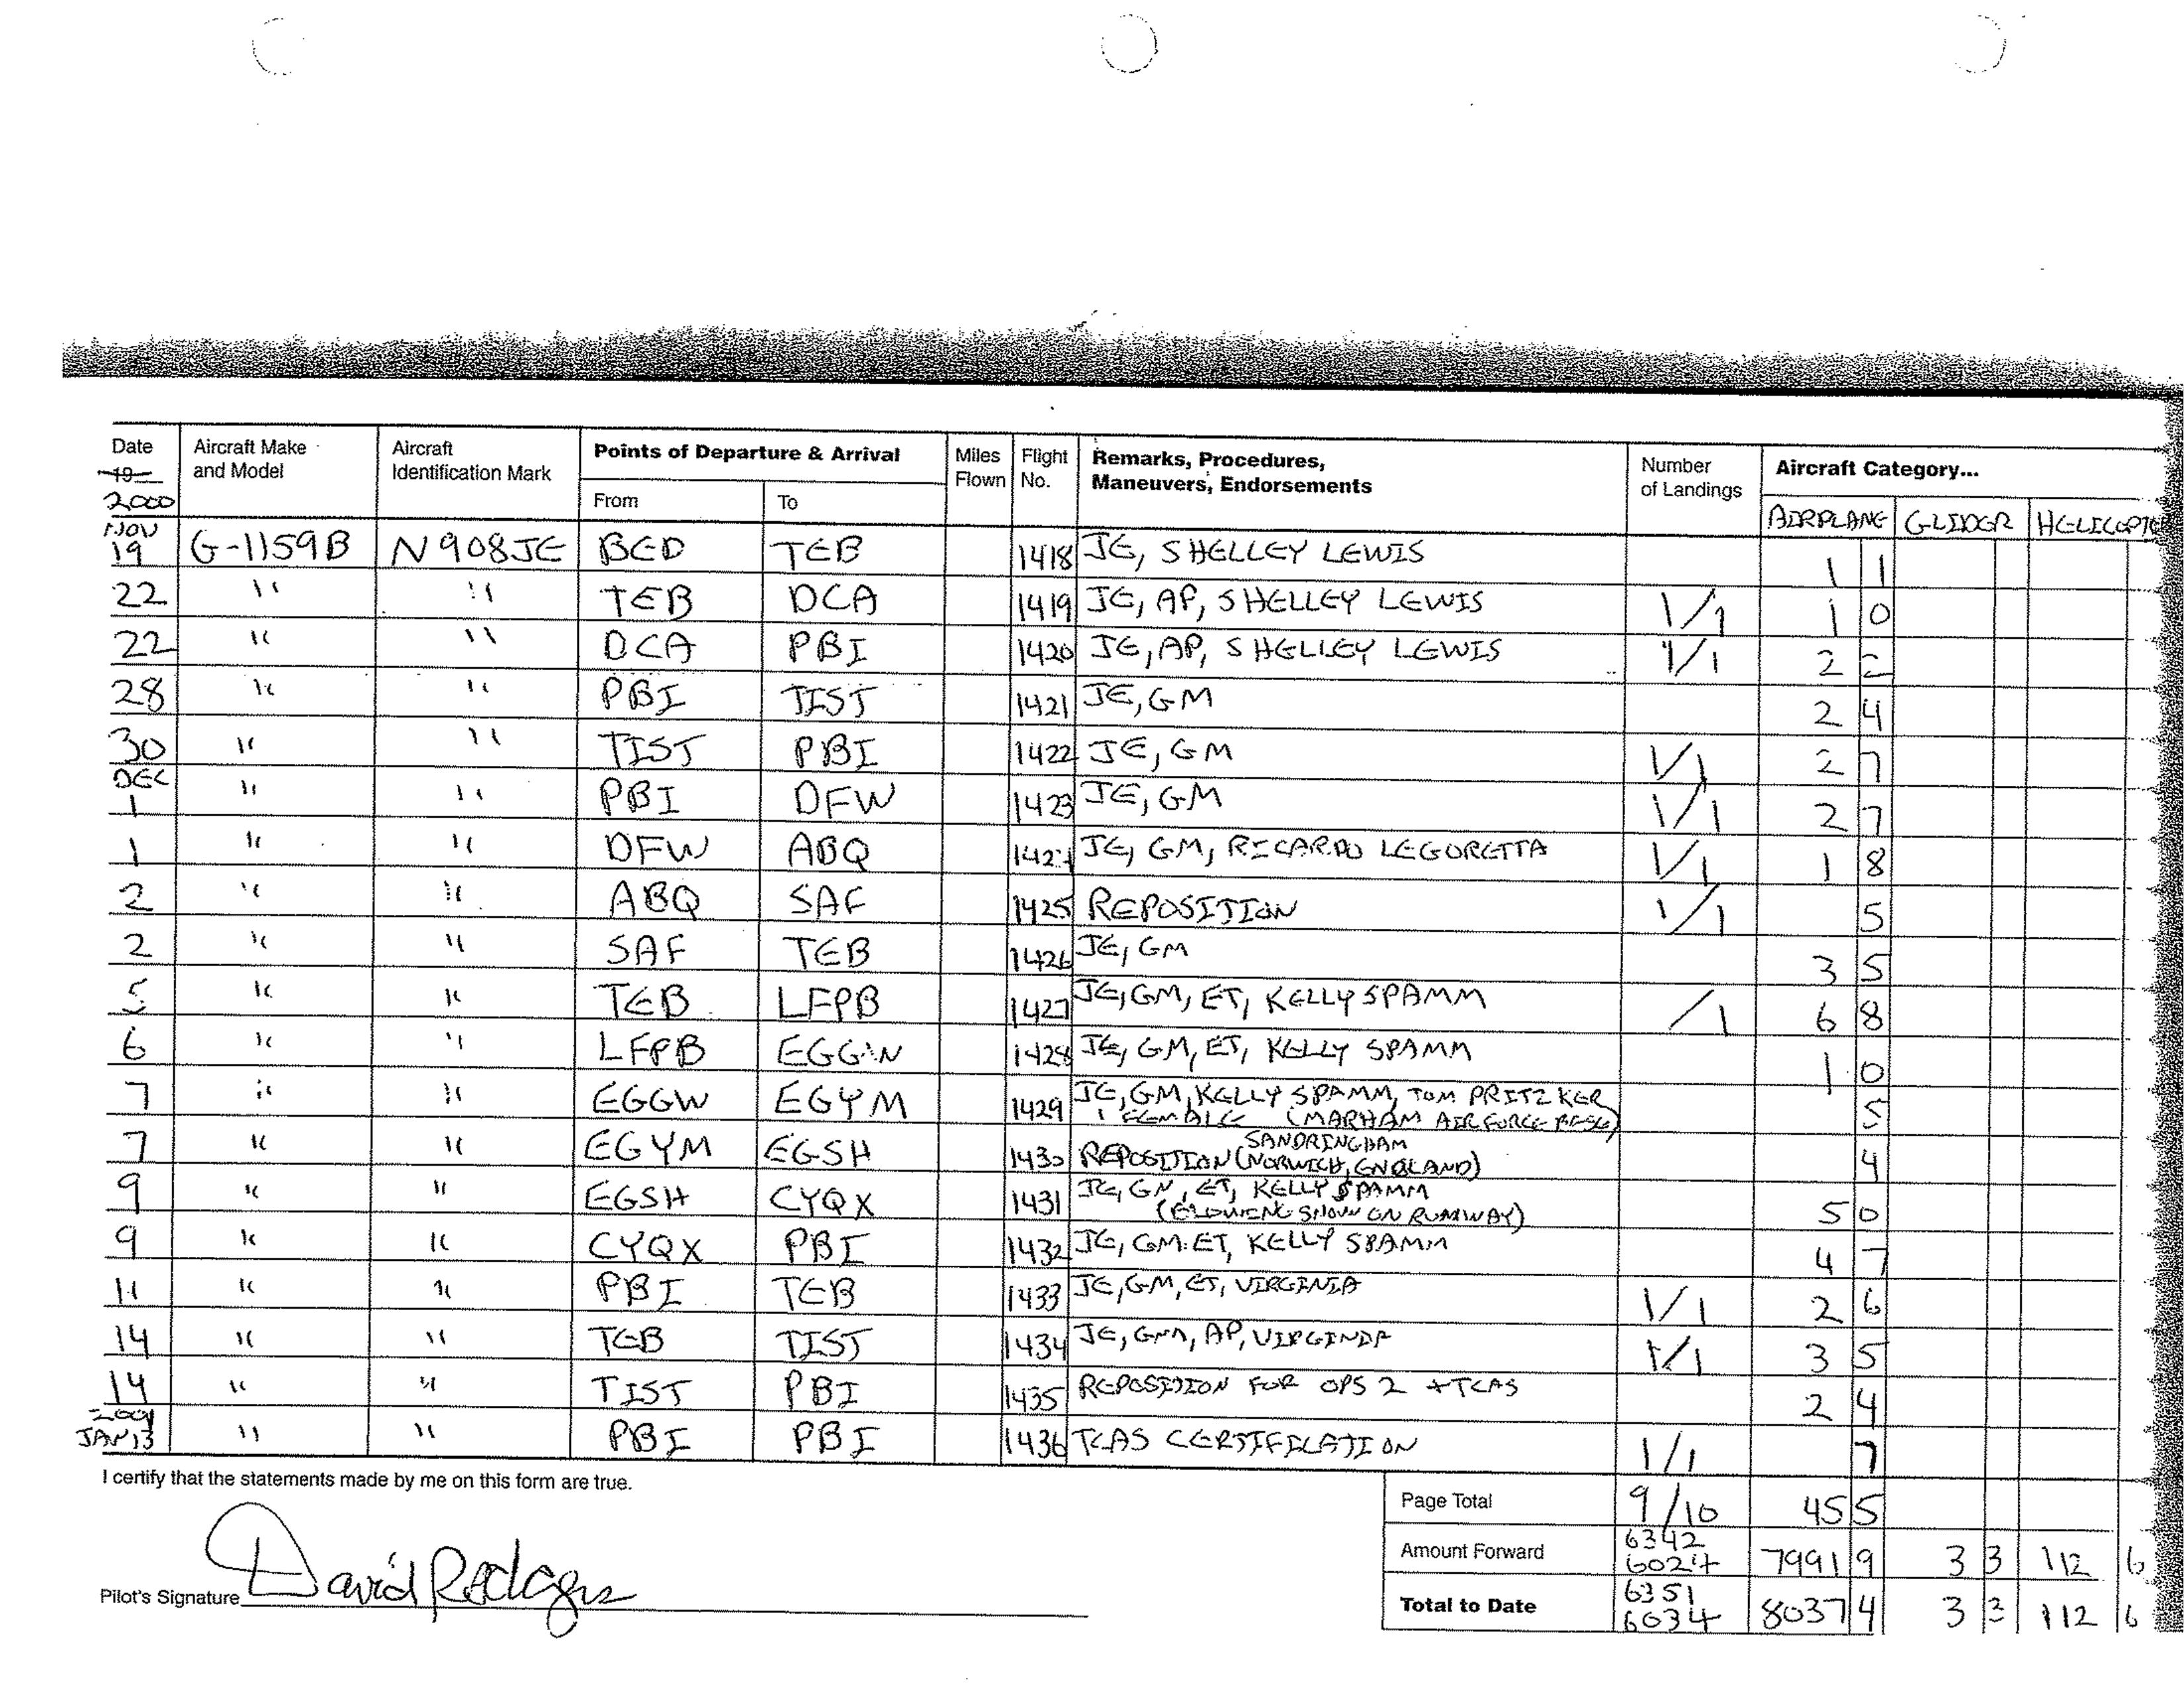 Date Aircraft Make and Model Aircraft Identification Mark Points of Departure & Arrival Miles Flown Flight No. Remarks, Procedures, Maneuvers, Endorsements Number of Landings Aircraft Category...
19
2000 From To AIRPLANE GLIDER HELICOPTE
NOV 19 G-1159B N908JE BED TEB 1418 JE, SHELLEY LEWIS 1 1
22 " " TEB DCA 1419 JE, AP, SHELLEY LEWIS 1/1 1 0
22 " " DCA PBI 1420 JE, AP, SHELLEY LEWIS 1/1 2 2
28 " " PBI TIST 1421 JE, GM 2 4
30 " " TIST PBI 1422 JE, GM 1/1 2 7
DEC 1 " " PBI DFW 1423 JE, GM 1/1 2 7
1 " " DFW ABQ 1424 JE, GM, RICARDO LEGORETTA 1/1 1 8
2 " " ABQ SAF 1425 REPOSITION 1/1 5
2 " " SAF TEB 1426 JE, GM 3 5
5 " " TEB LFPB 1427 JE, GM, ET, KELLY SPAMM /1 6 8
6 " " LFPB EGGW 1428 JE, GM, ET, KELLY SPAMM 1 0
7 " " EGGW EGYM 1429 JE, GM, KELLY SPAMM, TOM PRITZKER 5
1 FEMALE (MARHAM AIR FORCE BASE)
SANDRINGHAM
7 " " EGYM EGSH 1430 REPOSITION (NORWICH, ENGLAND) 4
9 " " EGSH CYQX 1431 JE, GM, ET, KELLY SPAMM 5 0
(BLOWING SNOW ON RUNWAY)
9 " " CYQX PBI 1432 JE, GM, ET, KELLY SPAMM 4 7
11 " " PBI TEB 1433 JE, GM, ET, VIRGINIA 1/1 2 6
14 " " TEB TIST 1434 JE, GM, AP, VIRGINIA 1/1 3 5
14 " " TIST PBI 1435 REPOSITION FOR OPS 2 + TCAS 2 4
2001 JAN 13 " " PBI PBI 1436 TCAS CERTIFICATION 1/1 7
I certify that the statements made by me on this form are true.
Page Total 9/10 45 5
Amount Forward 6342 6024 7991 9 3 3 112 6
Total to Date 6351 6034 8037 4 3 3 112 6
Pilot's Signature David Rodgers